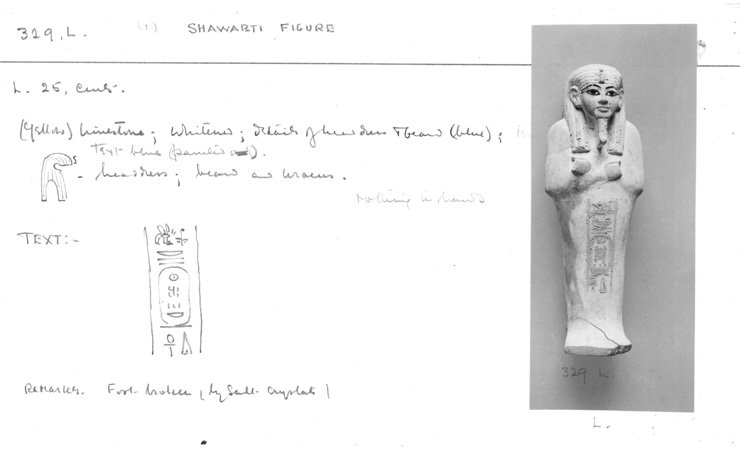 329, L. (1) SHAWABTI FIGURE
L. 25, cents.
(Yellow) limestone; whitened; details of headdress & beard (blue);
Text blue (painted
- headdress; beard and uraeus.
Nothing in hands
TEXT:-
Remarks. Foot broken (by Salt crystals)
329 L.
L.